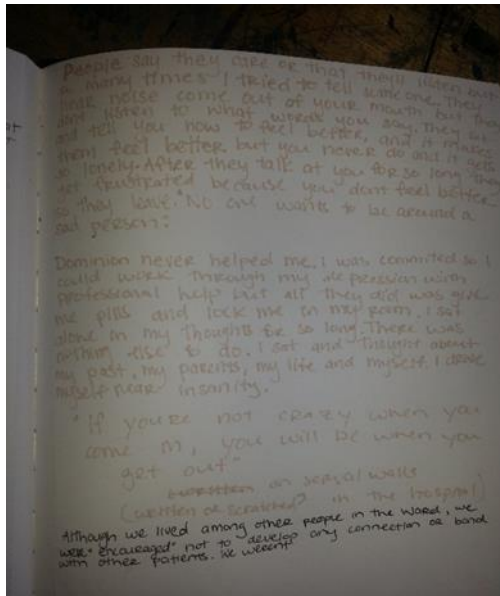 People say they care or that they'll listen but
a many times I tried to tell someone. They
hear noise come out of your mouth but they
dont listen to what words you say. They sit
and tell you how to feel better, and it makes
them feel better but you never do and it gets
so lonely. After they talk at you for so long they
get frustrated because you dont feel better
so they leave. "No one wants to be around a
sad person."
Dominion never helped me. I was commited so I
could work through my depression with
professional help but all they did was give
me pills and lock me in my room. I sat
alone in my thoughts for so long. There was
nothing else to do. I sat and thought about
my past, my parents, my life and myself. I drove
myself near insanity.
"If you're not crazy when you
come in, you will be when you
get out"
on several walls
(written or scratched) in the hospital)
Although we lived among other people in the ward, we
were "encouraged" not to develop any connection or bond
with other patients. We werent